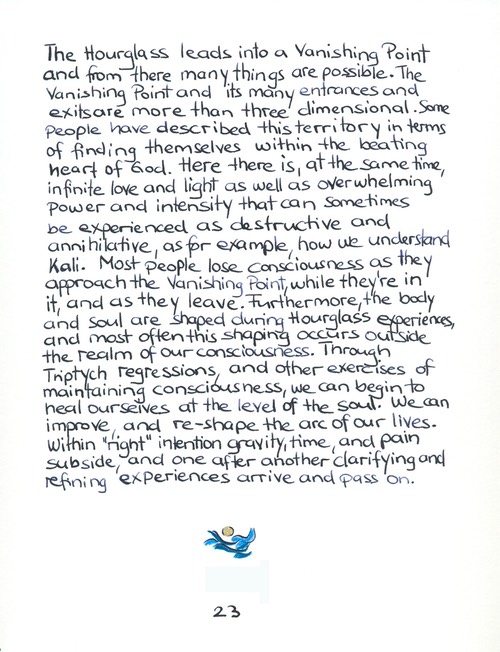 The Hourglass leads into a Vanishing Point
and from there many things are possible. The
Vanishing Point and its many entrances and
exits are more than three dimensional. Some
people have described this territory in terms
of finding themselves within the beating
heart of God. Here there is, at the same time,
infinite love and light as well as overwhelming
power and intensity that can sometimes
be experienced as destructive and
annihilative, as for example, how we understand
Kali. Most people lose consciousness as they
approach the Vanishing Point, while they're in
it, and as they leave. Furthermore, the body
and soul are shaped during Hourglass experiences,
and most often this shaping occurs outside
the realm of our consciousness. Through
Triptych regressions, and other exercises of
maintaining consciousness, we can begin to
heal ourselves at the level of the soul. We can
improve, and re-shape the arc of our lives.
Within "right" intention gravity, time, and pain
subside, and one after another clarifying and
refining experiences arrive and pass on.
23